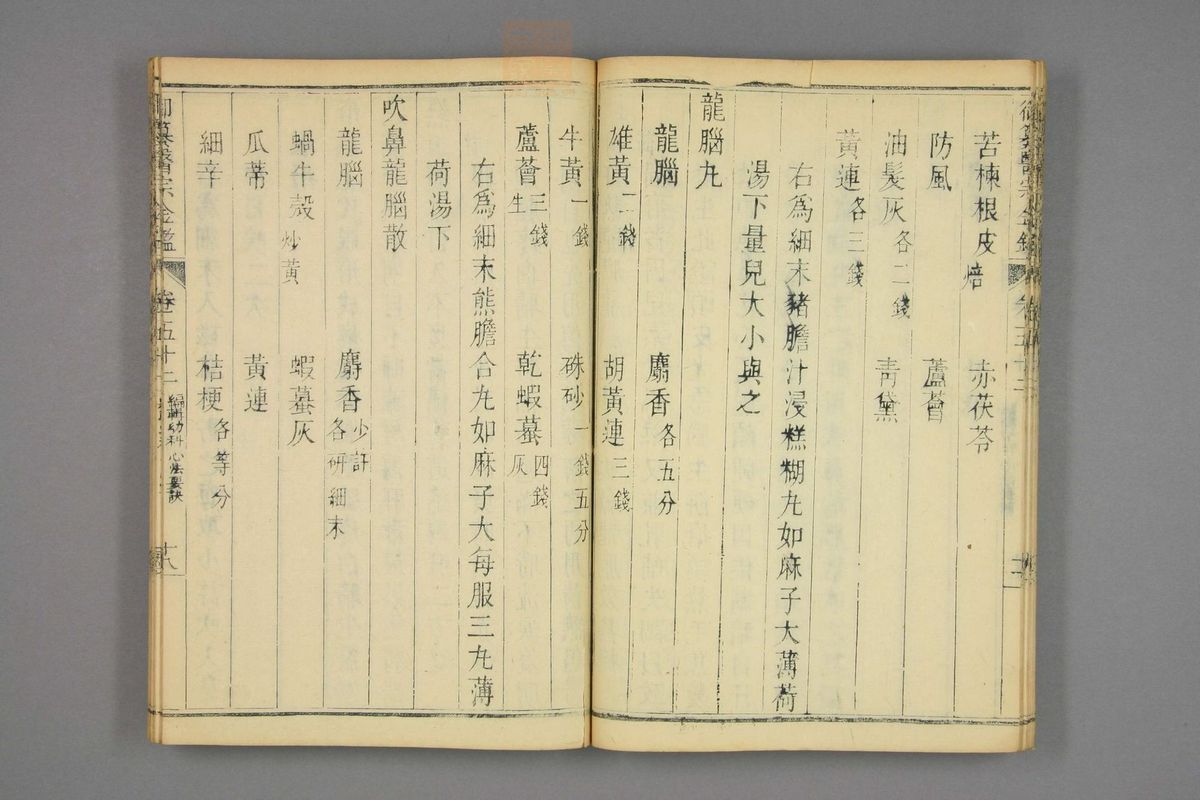 苦楝根皮焙　赤茯苓
防風　蘆薈
油髮灰各二錢　青黛
黃連各三錢
右爲細末豬膽汁浸糕糊丸如麻子大薄荷
湯下量兒大小與之
龍腦丸
龍腦　麝香各五分
雄黃二錢　胡黃連三錢
牛黃一錢　硃砂一錢五分
蘆薈三錢生　乾蝦蟇四錢灰
右爲細末熊膽合丸如麻子大每服三丸薄
荷湯下
吹鼻龍腦散
龍腦　麝香少許各研細末
蝸牛殼炒黃　蝦蟇灰
瓜蒂　黃連
細辛　桔梗各等分
御纂醫宗金鑑　卷五十二　編輯幼科心法要訣　十八